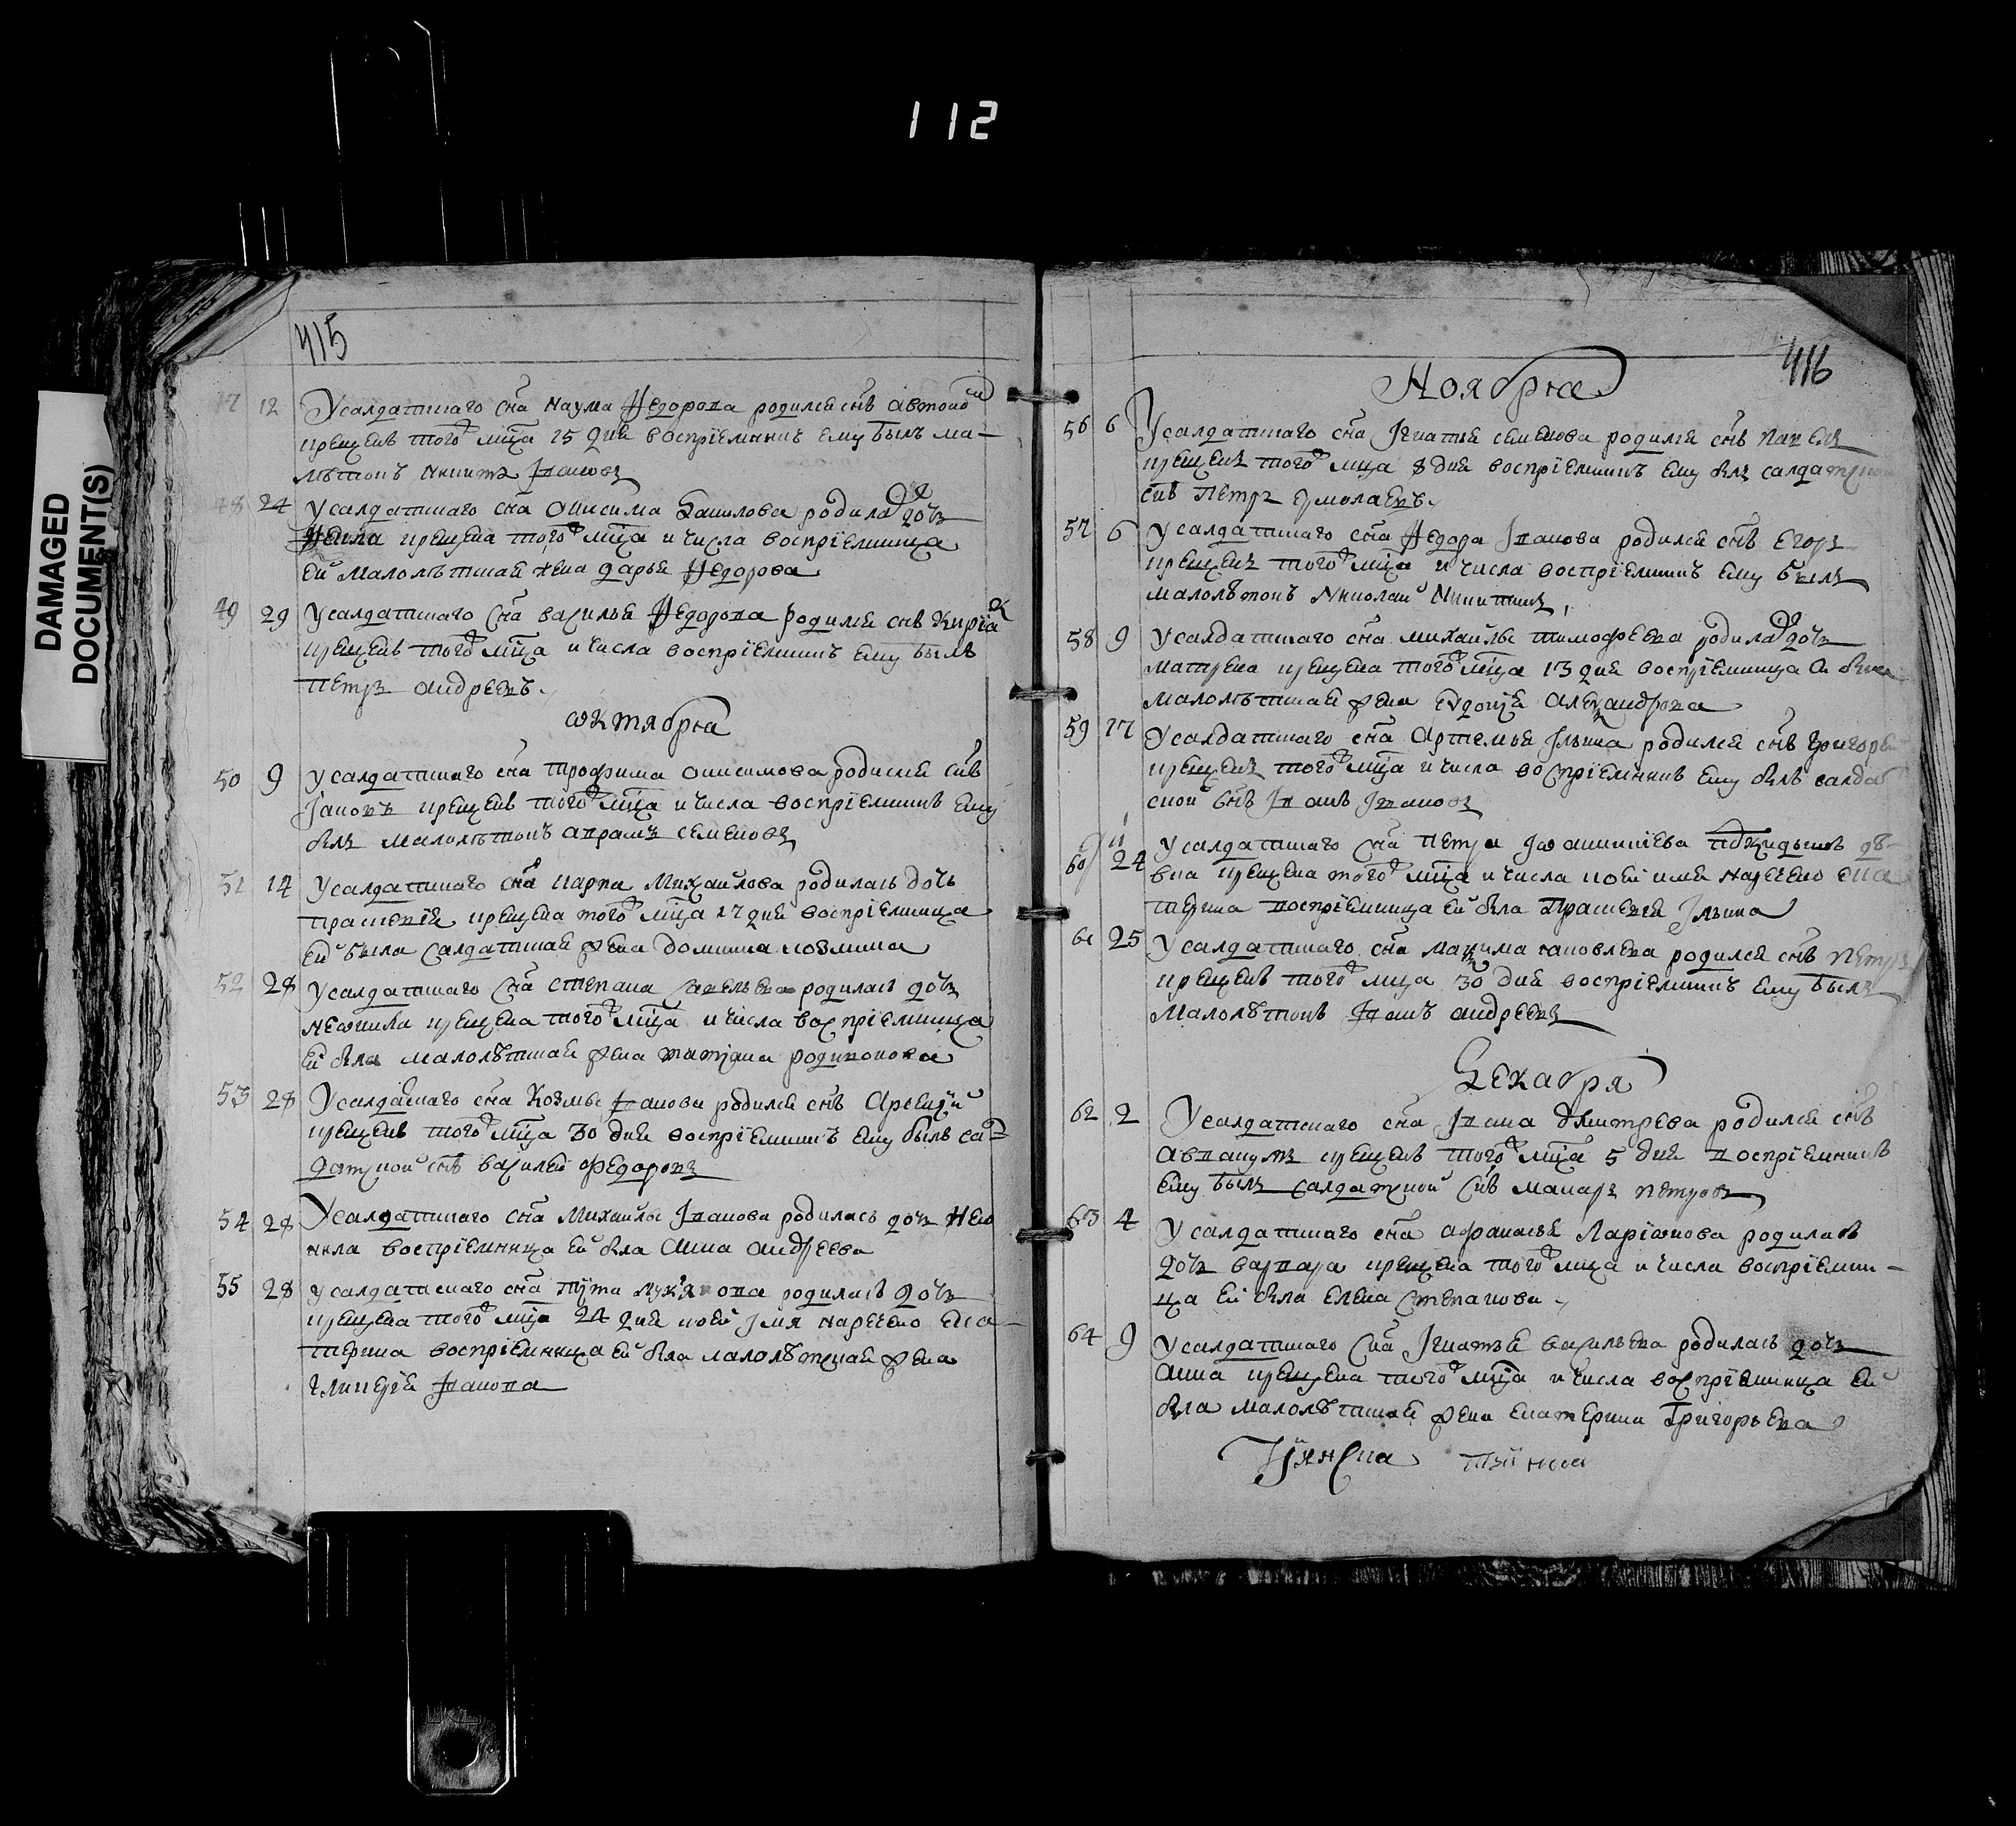 112
DAMAGED
DOCUMENT(S)
415
47 12 У салдатцкаго сна наума Ѳедорова родился снъ автоно
крещенъ того мца 15 дня восприемникъ ему былъ ма-
лѣтокъ никита Iвановъ
48 24 У салдатцкаго сна Онисима Данилова родилас дочь
Ѳекла крещена того мца и числа восприемница
ей малолѣтная жена дарья Ѳедорова
49 29 У салдатцкаго сна василья Ѳедорова родился снъ Киріак
крещенъ того мца и числа воспріемникъ ему былъ
Петръ андреевъ.
ѡктября
50 9 У салдатцкаго сна трофима онисимова родился снъ
Iаковъ крещенъ того мца и числа воспріемникъ ему
былъ малолѣтокъ аврамъ семеновъ
51 14 У салдатцкаго сна карпа Михаилова родилась дочь
прасковія крещена того мца 17 дня воспріемница
ей была салдатцкая жена домника козмина
52 28 У салдатцкаго сна степана родилась дочь
неѡнила крещена того мца и числа воспріемница
ей была малолѣтная жена татіана родионова
53 28 У салдацкаго сна Козмы Iванова родился снъ Арсеній
крещенъ того мца 30 дня воспріемникъ ему былъ сал
датцкой снъ василей Федоровъ
54 28 У салдатцкаго сна Михаилы Iванова родилась дочь нео
нила воспріемница ей была Анна андреева
55 28 У салдатцкаго сна Тита родилась дочь
крещена того мца 24 дня и ей Iмя наречено ека
терина воспріемница ей была малолѣтная жена
гликерія Iванова
416
Ноября
56 6 У салдатцкаго сна Iгнатья семенова родился снъ павелъ
крещенъ того мца 8 дня воспріемникъ ему былъ салдатцкой
снъ Петръ ермолаевъ.
57 6 У салдатцкаго сна Ѳедора Iванова родился снъ Егоръ
крещенъ того мца и числа воспріемникъ ему былъ
малолѣтокъ Николай Никитинъ
58 9 У салдатцкаго сна михаилы тимофеева родилас дочь
матрена крещена того мца 13 дня воспріемница была
малолѣтная жена Евдокія Александрова
59 17 У салдатцкаго сна Артемья Iльина родился снъ Григорей
крещенъ того мца и числа воспріемникъ ему былъ салдат
ской снъ Iванъ Iвановъ
60 24 У салдатцкаго сна Петра Iѡанникіева подкидышъ дѣ-
вка крещена того мца и числа и ей имя наречено ека
терина воспріемница ей была Прасковея Iльина
61 25 У салдатцкаго сна маѯима Iаковлева родился снъ петръ
крещенъ того мца 30 дня воспріемникъ ему былъ
малолѣтокъ Iванъ андреевъ
Декабря
62 2 У салдатцкаго сна Iвана дмитрева родился снъ
аввакумъ крещенъ того мца 5 дня воспріемникъ
ему былъ салдатцкой снъ макаръ петровъ
63 4 У салдатцкаго сна афанасья Ларіѡнова родилась
дочь варвара крещена того мца и числа воспріемни-
ца ей была Елена Степанова.
64 9 У салдатцкаго сна Iгнатья васильева родилась дочь
Анна крещена того мца и числа воспріемница ей
была малолѣтная жена Екатерина Григорьева